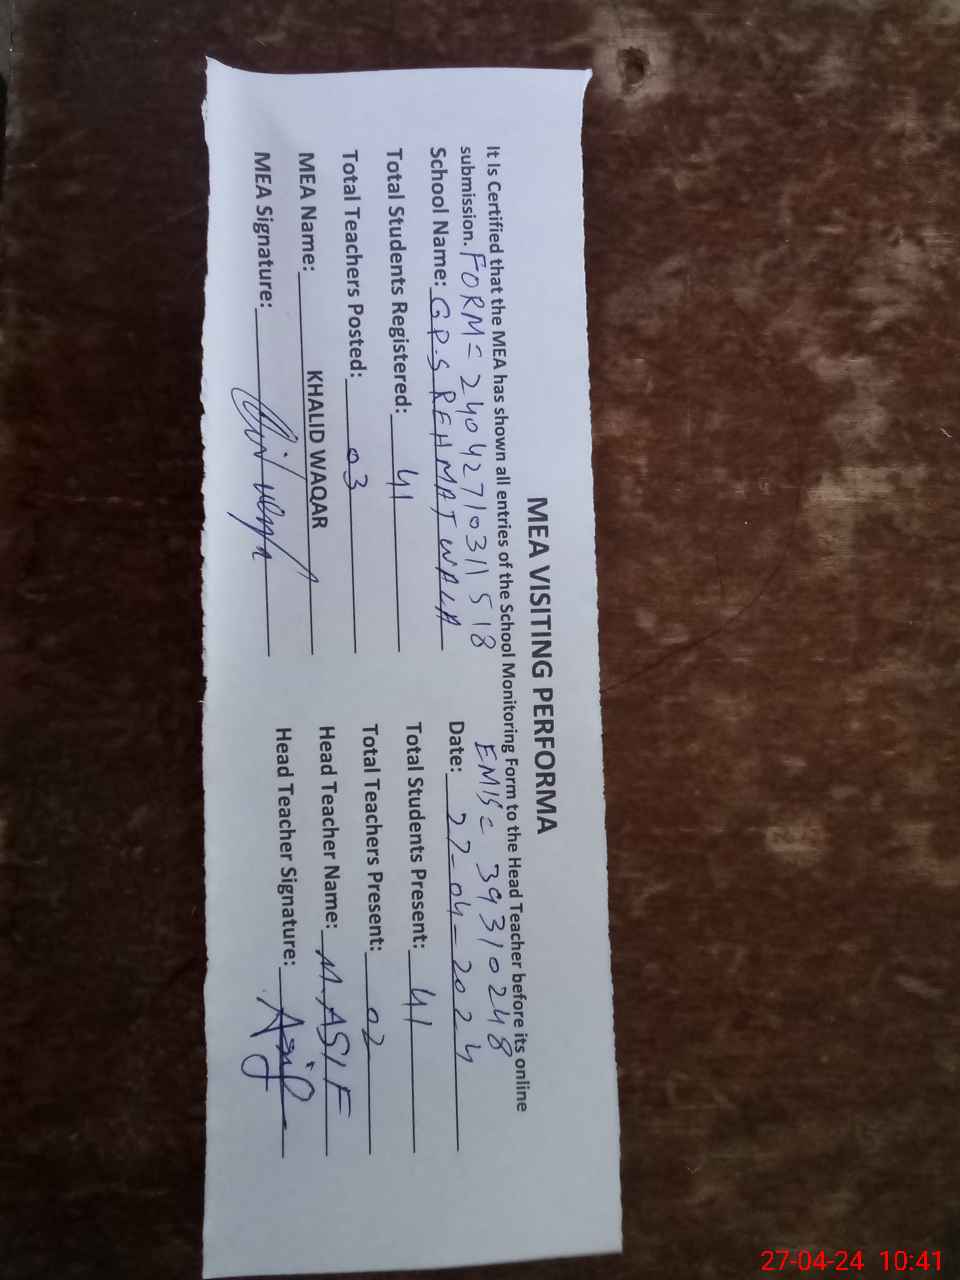 MEA VISITING PERFORMA
It Is Certified that the MEA has shown all entries of the School Monitoring Form to the Head Teacher before its online
submission. FORM= 240427103111518 EMIS= 39310248
School Name: G.P.S REHMAT WALA Date: 27-04-2024
Total Students Registered: 41 Total Students Present: 41
Total Teachers Posted: 03 Total Teachers Present: 02
MEA Name: KHALID WAQAR Head Teacher Name: M.ASIF
MEA Signature: Head Teacher Signature: Asif
27-04-24 10:41